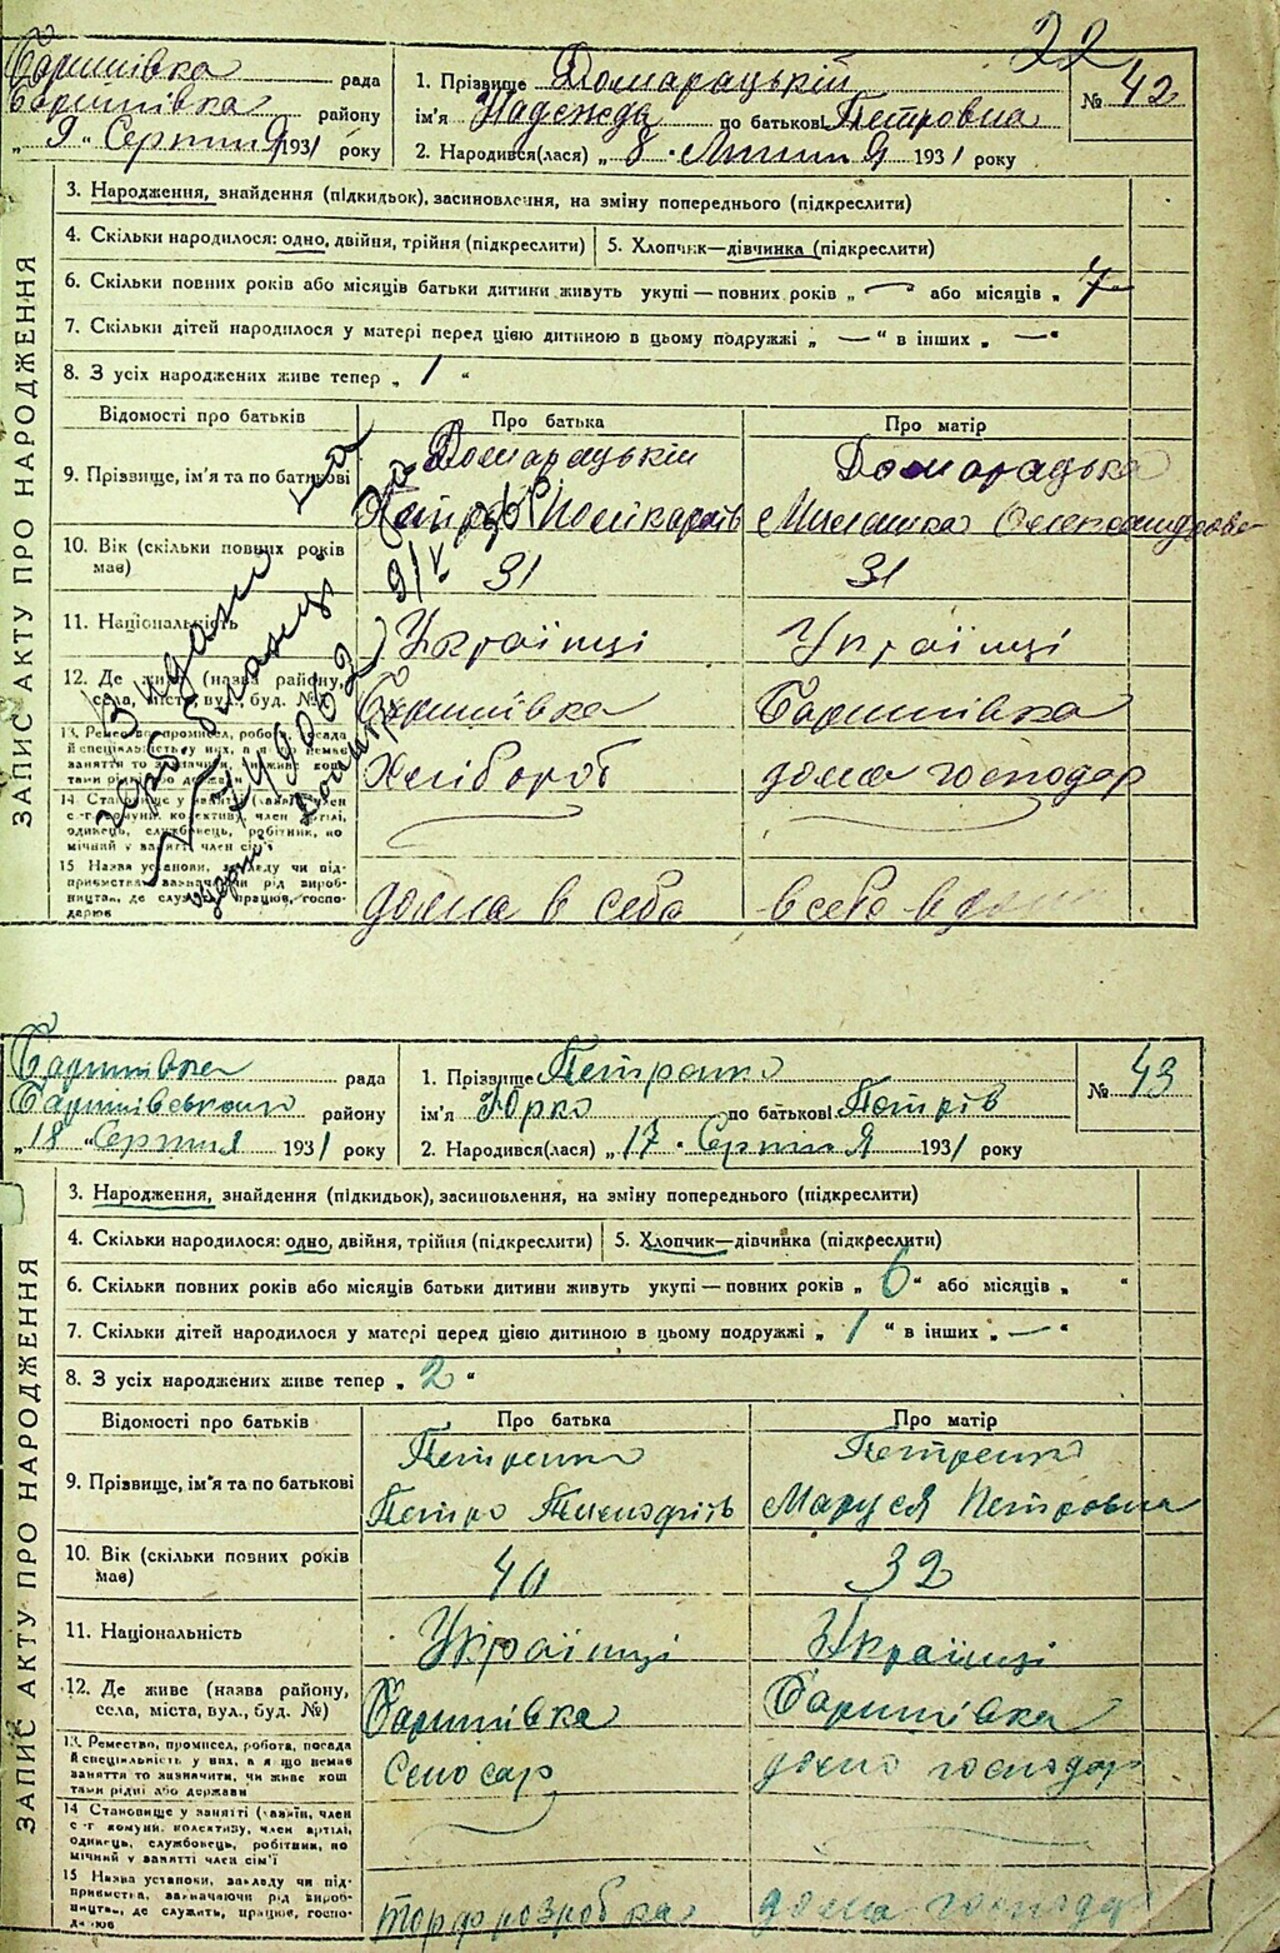 22
Баришівка рада
Баришівка району
„ 9 " Серпня 1931 року
1. Прізвище Домарацькій
ім'я Надежда по батькові Петровна
2. Народився(лася) „ 8 " Липня 1931 року
№ 42
ЗАПИС АКТУ ПРО НАРОДЖЕННЯ
3. Народження, знайдення (підкидьок), засиновлення, на зміну попереднього (підкреслити)
4. Скільки народилося: одно, двійня, трійня (підкреслити) 5. Хлопчик—дівчинка (підкреслити)
6. Скільки повних років або місяців батьки дитини живуть укупі — повних років „ — або місяців „ 7
7. Скільки дітей народилося у матері перед цією дитиною в цьому подружжі „ — " в інших „ — "
8. З усіх народжених живе тепер „ 1 "
Відомості про батьків Про батька Про матір
9. Прізвище, ім'я та по батькові Домарацькій Домарадька
Петро Полікарпів Миланка
10. Вік (скільки повних років має) 31 31
11. Національність Українці Українці
12. Де живе (назва району, села, міста, вул., буд. №) Баришівка Баришівка
13. Ремество, промисел, робота, посада й спеціяльність у них, а якщо немає заняття то зазначити, чи живе кош тами рідні або держави Хлібороб дома господар
14 Становище у занятті (хазяїн, член с-г комуни, колективу, член артілі, одинець, службовець, робітник, по мічний у занятті член сім'ї
15 Назва установи, закладу чи під- приємства, зазначаючи рід вироб- ництва, де служить, працює, госпо- дарює дома в себе в себе в дома
Баришівка рада
Баришівського району
„ 18 " Серпня 1931 року
1. Прізвище Петренко
ім'я Юрко по батькові Петрів
2. Народився(лася) „ 17 " Серпня 1931 року
№ 43
ЗАПИС АКТУ ПРО НАРОДЖЕННЯ
3. Народження, знайдення (підкидьок), засиновлення, на зміну попереднього (підкреслити)
4. Скільки народилося: одно, двійня, трійня (підкреслити) 5. Хлопчик—дівчинка (підкреслити)
6. Скільки повних років або місяців батьки дитини живуть укупі — повних років „ 6 " або місяців „ "
7. Скільки дітей народилося у матері перед цією дитиною в цьому подружжі „ 1 " в інших „ — "
8. З усіх народжених живе тепер „ 2 "
Відомості про батьків Про батька Про матір
9. Прізвище, ім'я та по батькові Петренко Петренко
Петро Маруся Петровна
10. Вік (скільки повних років має) 40 32
11. Національність Українці Українці
12. Де живе (назва району, села, міста, вул., буд. №) Баришівка Баришівка
13. Ремество, промисел, робота, посада й спеціяльність у них, а якщо немає заняття то зазначити, чи живе кош тами рідні або держави дома господар
14 Становище у занятті (хазяїн, член с-г комуни, колективу, член артілі, одинець, службовець, робітник, по мічний у занятті член сім'ї
15 Назва установи, закладу чи під- приємства, зазначаючи рід вироб- ництва, де служить, працює, госпо- дарює торфрозробка дома господар